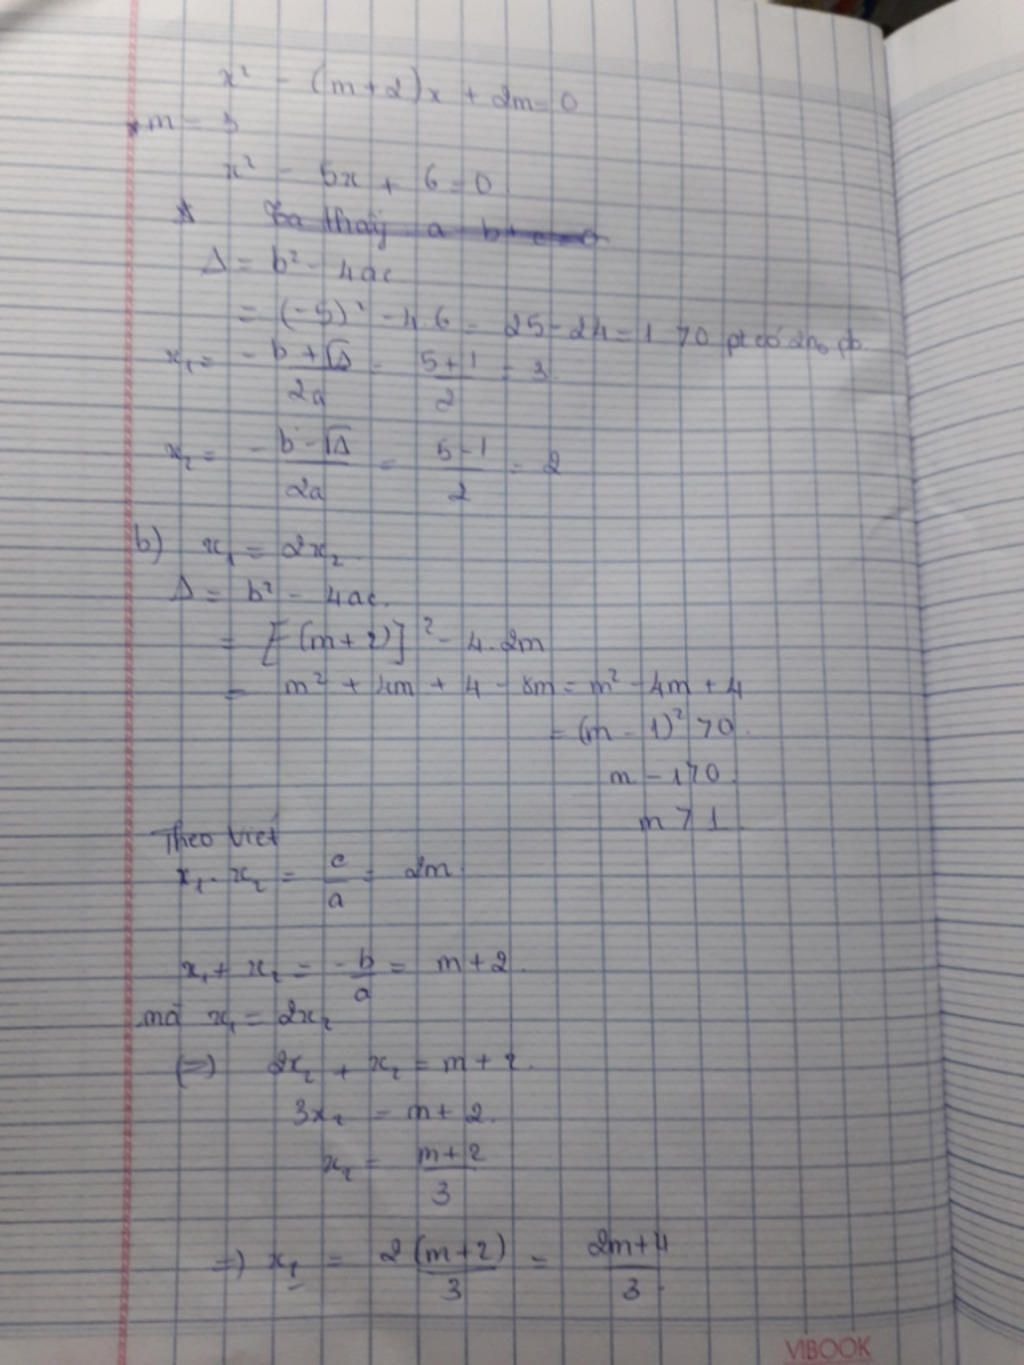 x² - (m+2)x + 2m = 0
m = 3
x² - 5x + 6 = 0
Ta thấy a b+c=0
Δ = b² - 4ac
= (-5)² - 4.6 = 25 - 24 = 1 > 0 pt có 2n₀ pb
x₁ = -b + √Δ / 2a = 5+1 / 2 = 3
x₂ = -b - √Δ / 2a = 5-1 / 2 = 2
b) x₁ = 2x₂
Δ = b² - 4ac.
= [-(m+2)]² - 4.2m
= m² + 4m + 4 - 8m = m² - 4m + 4
= (m - 1)² > 0.
m - 1 > 0
m > 1
Theo Viet
x₁ . x₂ = c/a = 2m.
x₁ + x₂ = -b/a = m+2.
mà x₁ = 2x₂
(=) 2x₂ + x₂ = m+2.
3x₂ = m+2.
x₂ = m+2 / 3
=) x₁ = 2(m+2) / 3 = 2m+4 / 3.
VIBOOK